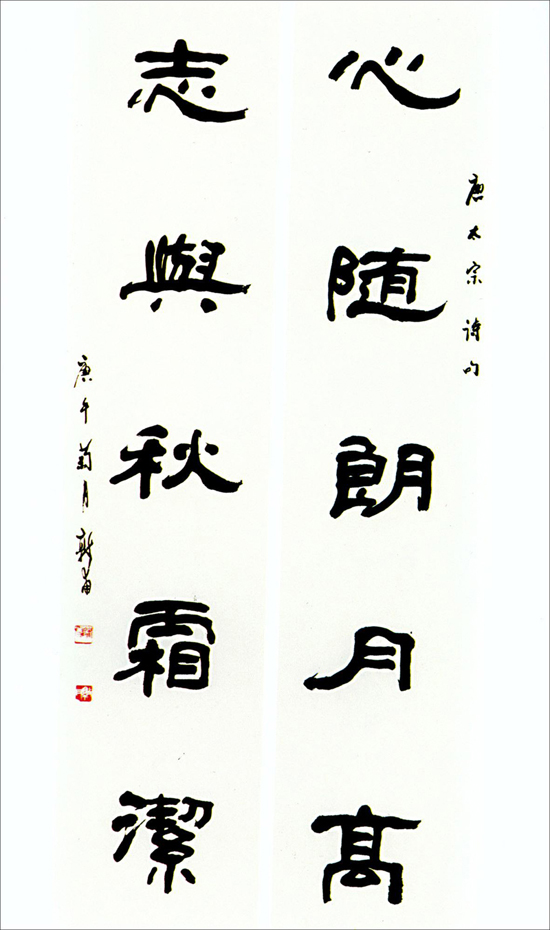 唐太宗诗句
心随朗月高
志與秋霜潔
庚午菊月新苗